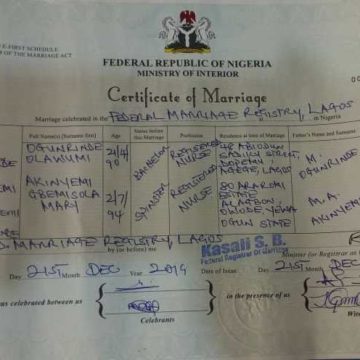 E-FIRST SCHEDULE
OF THE MARRIAGE ACT
FEDERAL REPUBLIC OF NIGERIA
MINISTRY OF INTERIOR
Certificate of Marriage
Marriage celebrated in the FEDERAL MARRIAGE REGISTRY, LAGOS in Nigeria
Full Name(s) (Surname first) Age Status before this Marriage Profession Residence at time of Marriage Father's Name and Surname
OGUNRINDE OLAWUMI 21/4/90 BACHELOR REGISTERED NURSE STREET, AGEGE, LAGOS M. OGUNRINDE
AKINYEMI GBEMISOLA MARY 2/7/94 SPINSTER REGISTERED NURSE 80 ARAROMI ESTATE OGUN STATE M. A. AKINYEMI
MARRIAGE REGISTRY, LAGOS
by (or before) me
Kasali S. B.
Federal Registrar Of Marriage
Minister for Registrar
Day 21ST Month DEC Year 2019 Date of Issue Day 21ST Month DEC
was celebrated between us
Celebrants
in the presence of us